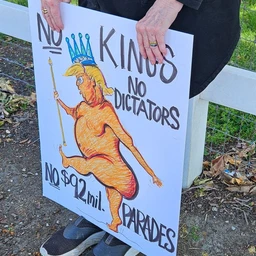 NO KINGS
NO
DICTATORS
NO $92 mil. PARADES